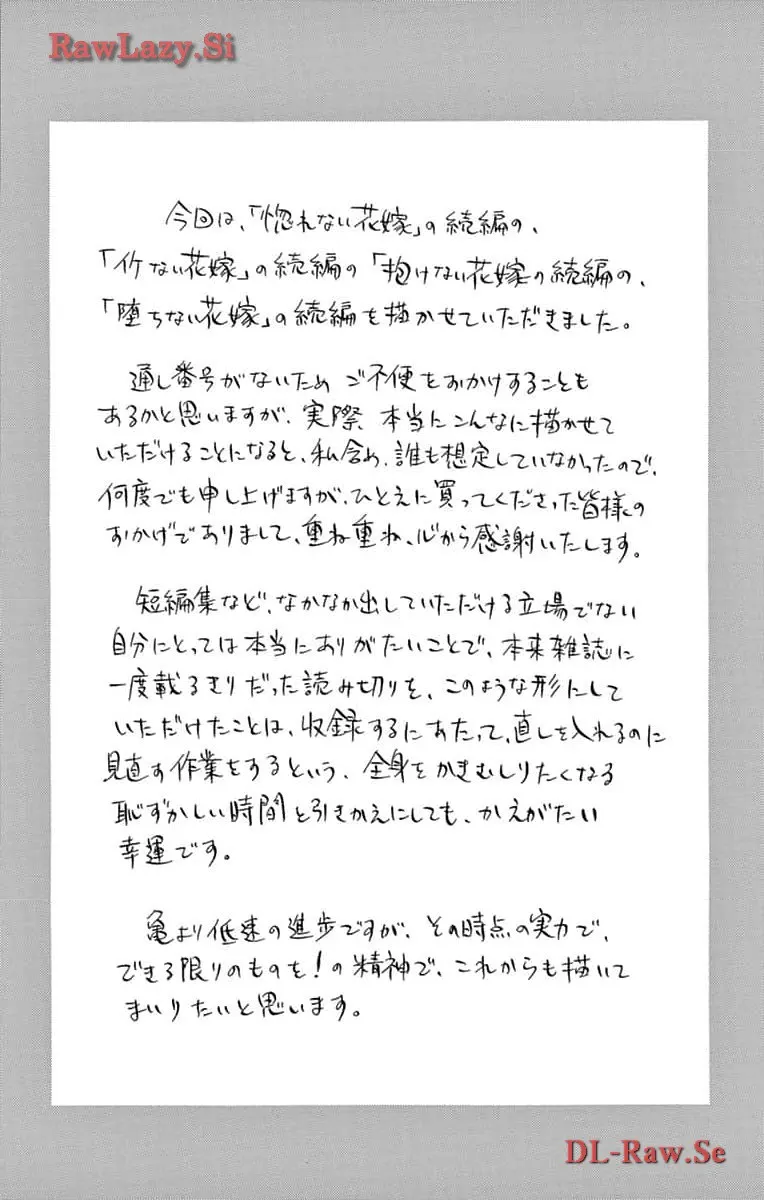 RawLazy.Si
今回は、「惚れない花嫁」の続編の、
「イケない花嫁」の続編の「抱けない花嫁の続編の、
「堕ちない花嫁」の続編を描かせていただきました。
通し番号がないためご不便をおかけすることも
あるかと思いますが、実際、本当にこんなに描かせて
いただけることになると、私含め、誰も想定していなかったので、
何度でも申し上げますが、ひとえに買ってくださった皆様の
おかげでありまして、重ね重ね、心から感謝いたします。
短編集など、なかなか出していただける立場でない
自分にとっては本当にありがたいことで、本来雑誌に
一度載るきりだった読み切りを、このような形にして
いただけたことは、収録するにあたって、直しを入れるのに
見直す作業をするという、全身をかきむしりたくなる
恥ずかしい時間と引きかえにしても、かえがたい
幸運です。
亀より低速の進歩ですが、その時点の実力で、
できる限りのものを！の精神で、これからも描いて
まいりたいと思います。
DL-Raw.Se